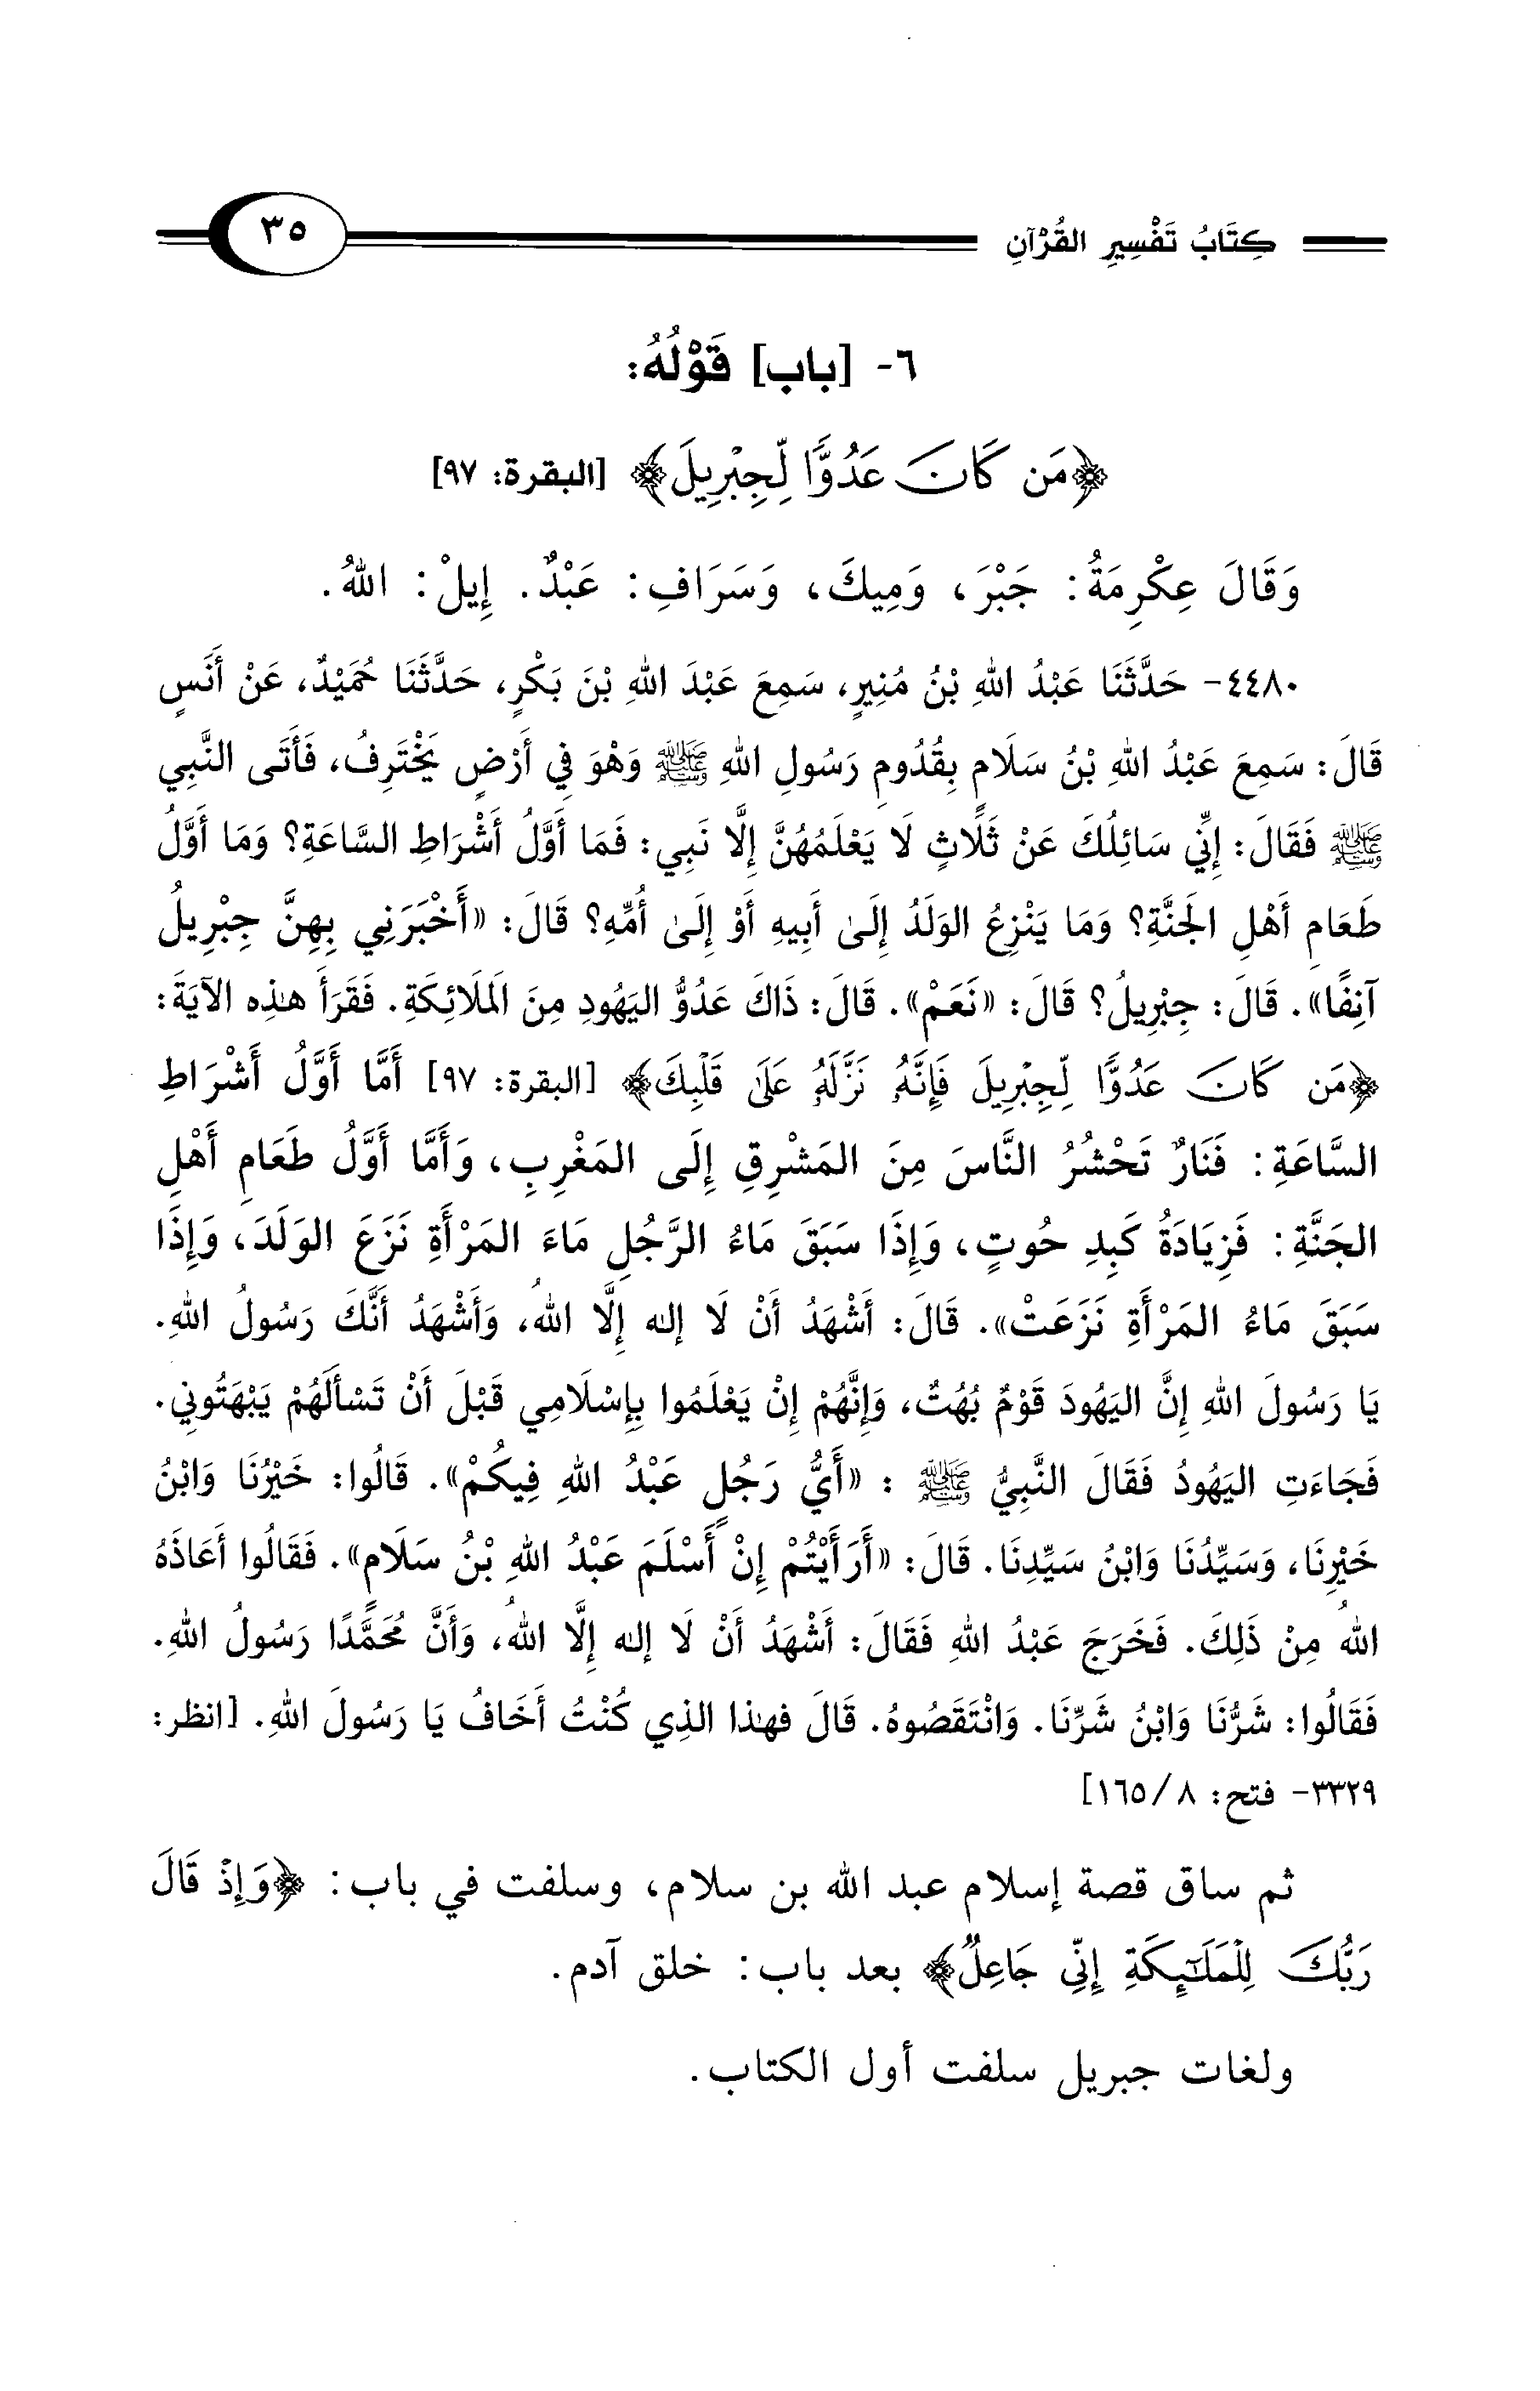 كِتَابُ تَفْسِيرِ القُرْآنِ ٣٥
٦- [باب] قَوْلُهُ:
﴿مَن كَانَ عَدُوًّا لِّجِبْرِيلَ﴾ [البقرة: ٩٧]
وَقَالَ عِكْرِمَةُ: جَبْرَ، وَمِيكَ، وَسَرَافِ: عَبْدٌ. إِيلْ: اللهُ.
٤٤٨٠- حَدَّثَنَا عَبْدُ اللهِ بْنُ مُنِيرٍ، سَمِعَ عَبْدَ اللهِ بْنَ بَكْرٍ، حَدَّثَنَا حُمَيْدٌ، عَنْ أَنَسٍ
قَالَ: سَمِعَ عَبْدُ اللهِ بْنُ سَلَامٍ بِقُدُومِ رَسُولِ اللهِ ﷺ وَهْوَ فِي أَرْضٍ يَخْتَرِفُ، فَأَتَى النَّبِي
ﷺ فَقَالَ: إِنِّي سَائِلُكَ عَنْ ثَلَاثٍ لَا يَعْلَمُهُنَّ إِلَّا نَبِي: فَمَا أَوَّلُ أَشْرَاطِ السَّاعَةِ؟ وَمَا أَوَّلُ
طَعَامِ أَهْلِ الجَنَّةِ؟ وَمَا يَنْزِعُ الوَلَدُ إِلَىٰ أَبِيهِ أَوْ إِلَىٰ أُمِّهِ؟ قَالَ: «أَخْبَرَنِي بِهِنَّ جِبْرِيلُ
آنِفًا». قَالَ: جِبْرِيلُ؟ قَالَ: «نَعَمْ». قَالَ: ذَاكَ عَدُوُّ اليَهُودِ مِنَ المَلَائِكَةِ. فَقَرَأَ هذِه الآيَةَ:
﴿مَن كَانَ عَدُوًّا لِّجِبْرِيلَ فَإِنَّهُ نَزَّلَهُ عَلَىٰ قَلْبِكَ﴾ [البقرة: ٩٧] أَمَّا أَوَّلُ أَشْرَاطِ
السَّاعَةِ: فَنَارٌ تَحْشُرُ النَّاسَ مِنَ المَشْرِقِ إِلَى المَغْرِبِ، وَأَمَّا أَوَّلُ طَعَامِ أَهْلِ
الجَنَّةِ: فَزِيَادَةُ كَبِدِ حُوتٍ، وَإِذَا سَبَقَ مَاءُ الرَّجُلِ مَاءَ المَرْأَةِ نَزَعَ الوَلَدَ، وَإِذَا
سَبَقَ مَاءُ المَرْأَةِ نَزَعَتْ». قَالَ: أَشْهَدُ أَنْ لَا إله إِلَّا اللهُ، وَأَشْهَدُ أَنَّكَ رَسُولُ اللهِ.
يَا رَسُولَ اللهِ إِنَّ اليَهُودَ قَوْمٌ بُهُتٌ، وَإِنَّهُمْ إِنْ يَعْلَمُوا بِإِسْلَامِي قَبْلَ أَنْ تَسْأَلَهُمْ يَبْهَتُونِي.
فَجَاءَتِ اليَهُودُ فَقَالَ النَّبِيُّ ﷺ : «أَيُّ رَجُلٍ عَبْدُ اللهِ فِيكُمْ». قَالُوا: خَيْرُنَا وَابْنُ
خَيْرِنَا، وَسَيِّدُنَا وَابْنُ سَيِّدِنَا. قَالَ: «أَرَأَيْتُمْ إِنْ أَسْلَمَ عَبْدُ اللهِ بْنُ سَلَامٍ». فَقَالُوا أَعَاذَهُ
اللهُ مِنْ ذَلِكَ. فَخَرَجَ عَبْدُ اللهِ فَقَالَ: أَشْهَدُ أَنْ لَا إله إِلَّا اللهُ، وَأَنَّ مُحَمَّدًا رَسُولُ اللهِ.
فَقَالُوا: شَرُّنَا وَابْنُ شَرِّنَا. وَانْتَقَصُوهُ. قَالَ فهذا الذِي كُنْتُ أَخَافُ يَا رَسُولَ اللهِ. [انظر:
٣٣٢٩- فتح: ٨/ ١٦٥]
ثم ساق قصة إسلام عبد الله بن سلام، وسلفت في باب: ﴿وَإِذْ قَالَ
رَبُّكَ لِلْمَلَٰٓئِكَةِ إِنِّي جَاعِلٌ﴾ بعد باب: خلق آدم.
ولغات جبريل سلفت أول الكتاب.